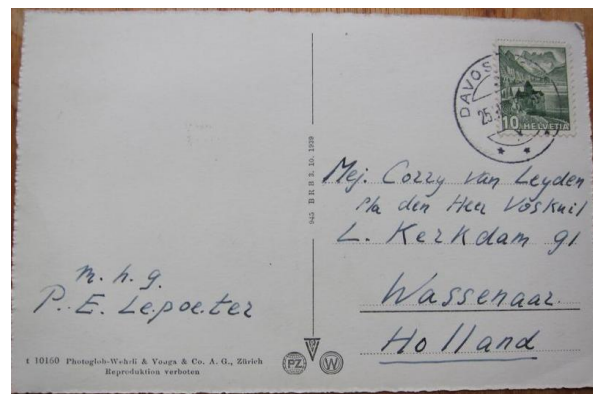 DAVOS
25.
10 HELVETIA
Mej. Corry van Leyden
p/a den Heer Voskuil
L. Kerkdam 91
Wassenaar
Holland
m. h. g.
P. E. Lepoeter
945 BRB 3. 10. 1939
t 10160 Photoglob-Wehrli & Vouga & Co. A. G., Zürich
Reproduktion verboten
PZ
W